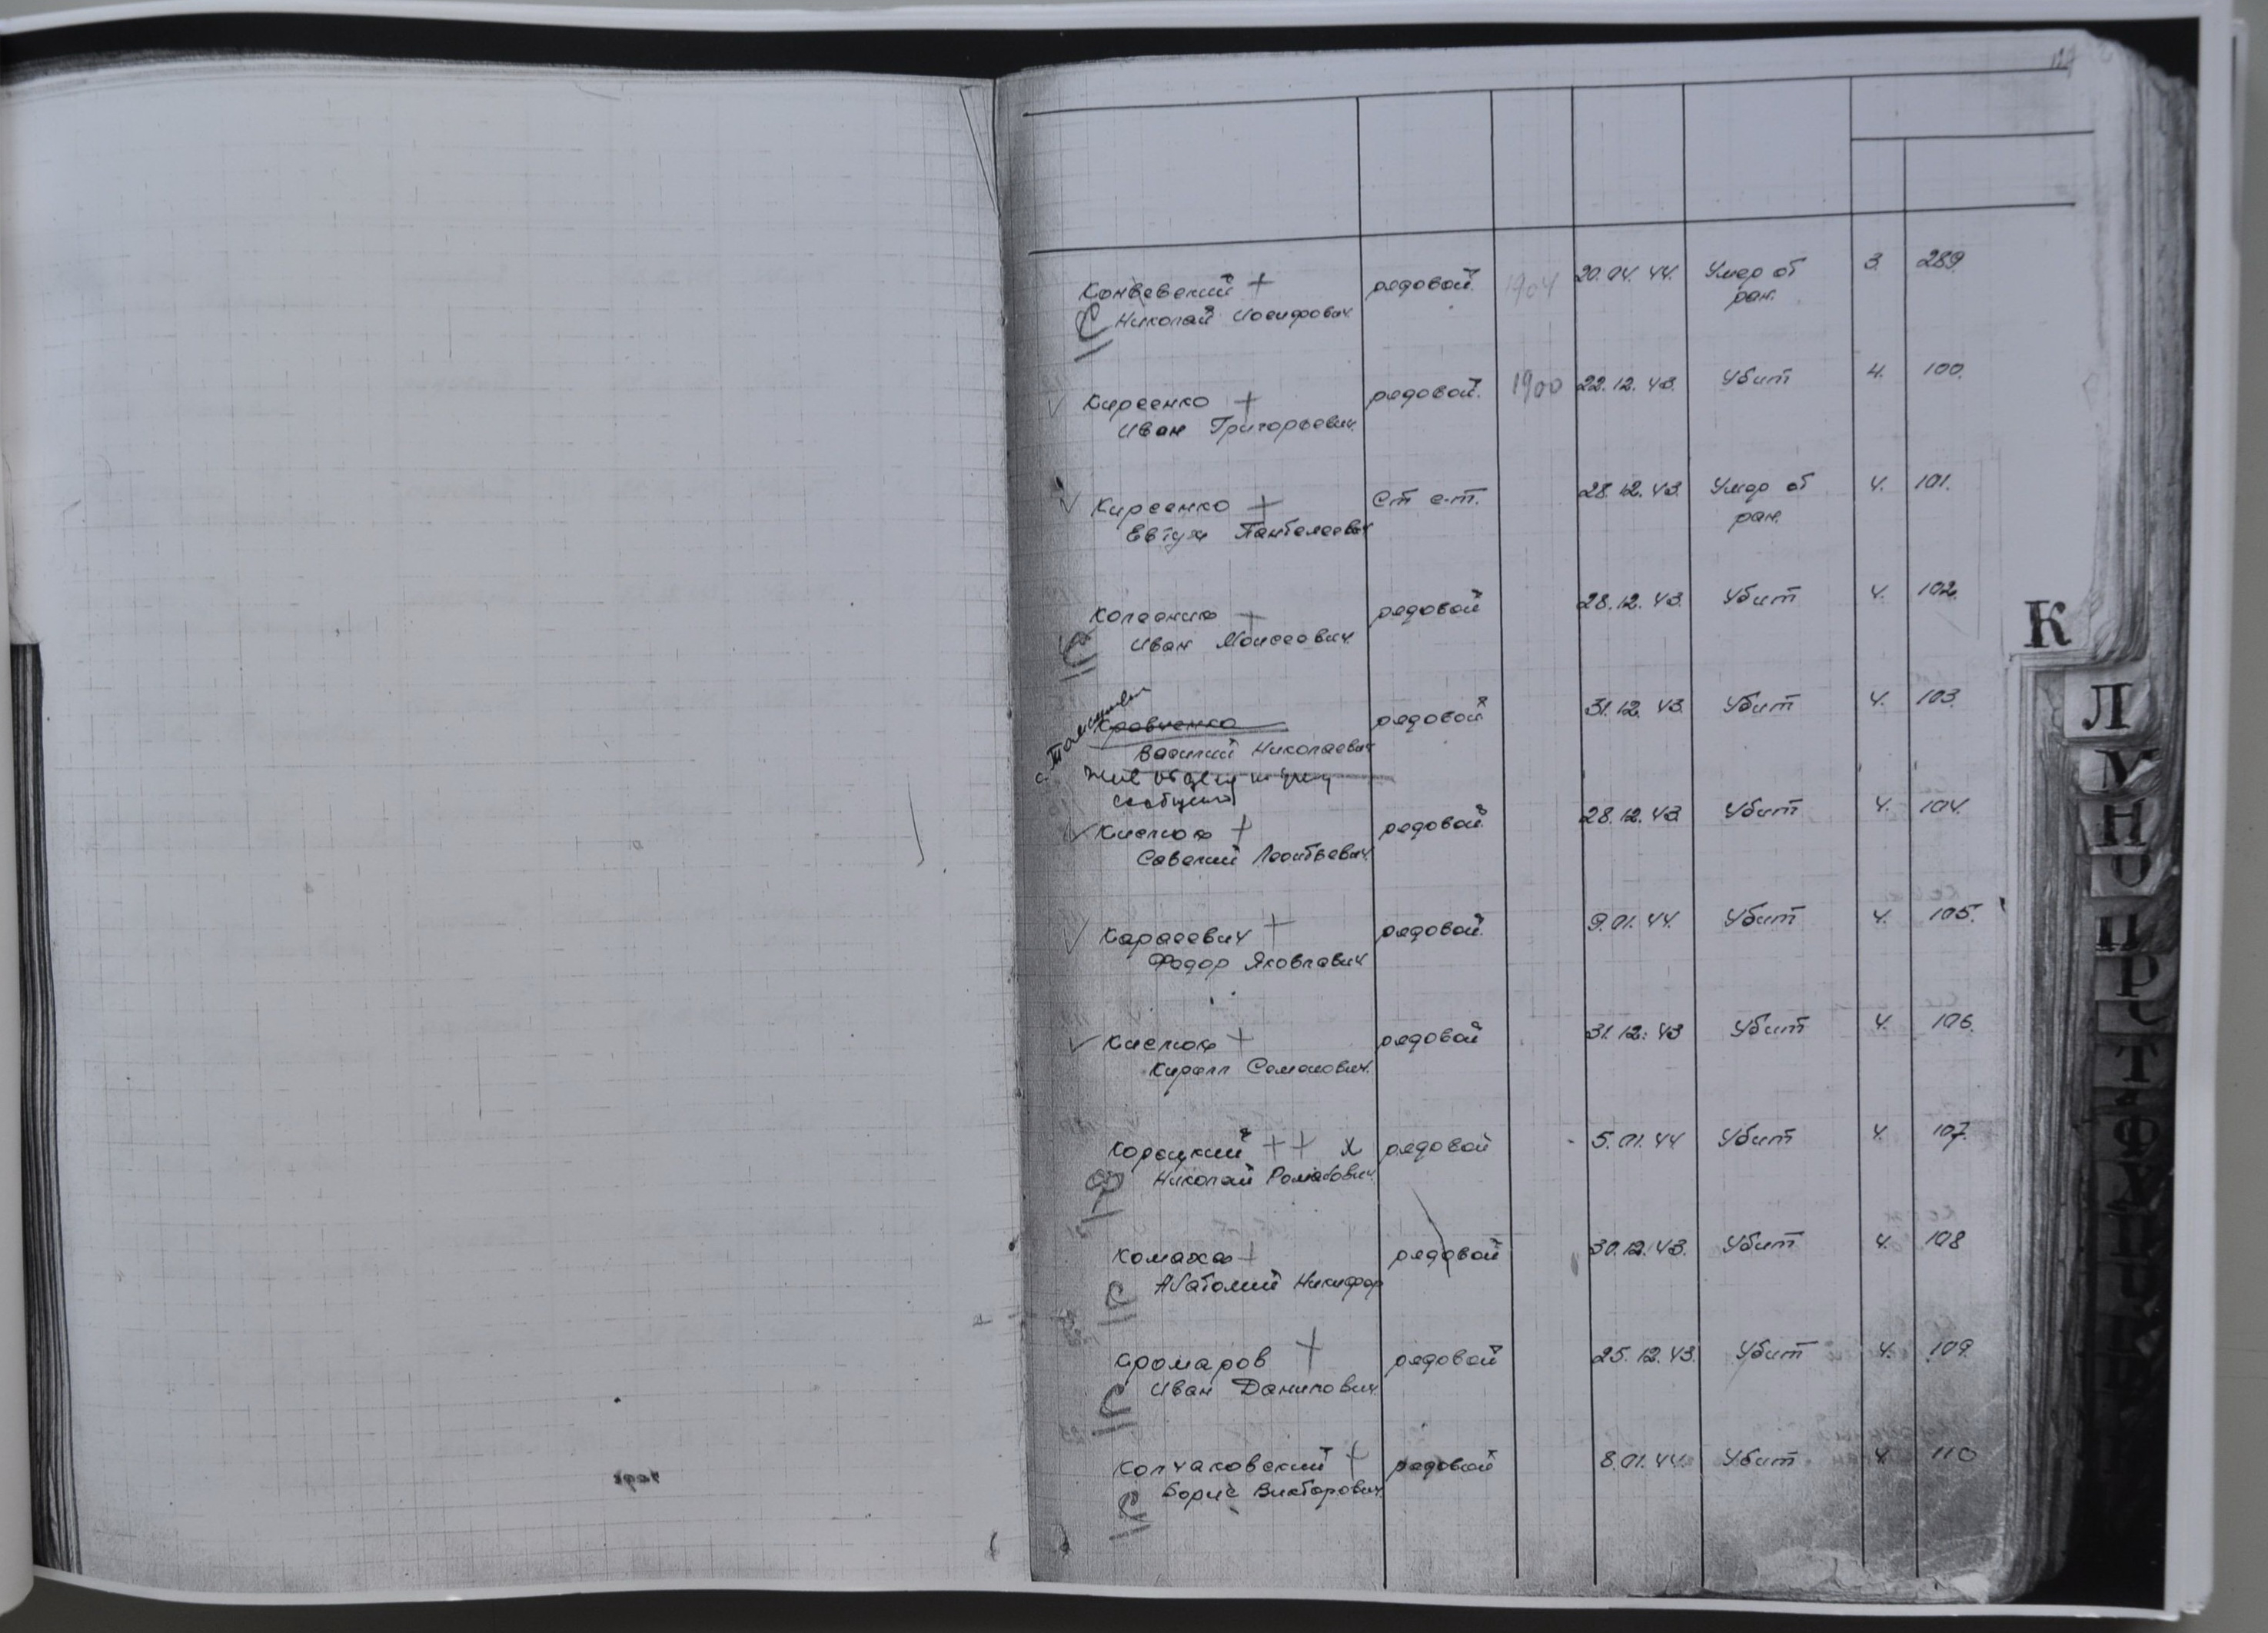 Коневский + рядовой 1904 20.04.44. Умер от 3. 289
С Николай Иосифович ран.
Кирсенко + рядовой. 1900 22.12.43. Убит 4. 100.
Иван Григорьевич
Кирсенко + Ст с-т. 28.12.43. Умер от 4. 101.
Евтух Пантелеевич ран.
Колесник + рядовой 28.12.43. Убит 4. 102.
Иван Моисеевич
Кравченко рядовой 31.12.43. Убит 4. 103.
Василий Николаевич
сообщил
Кислюк + рядовой. 28.12.43 Убит 4. 104.
Савелий Леонтьевич
Карасевич + рядовой. 9.01.44. Убит 4. 105.
Федор Яковлевич
Кислюк + рядовой 31.12.43 Убит 4. 106.
Кирилл Семенович.
Корецкий + + х рядовой 5.01.44 Убит 4. 107.
Николай Романович
Комаха + рядовой 30.12.43. Убит 4. 108
С Анатолий Никифор
+ рядовой 25.12.43. Убит 4. 109.
С Иван Данилович
Колчаковский + рядовой 8.01.44. Убит 4 110
С Борис Викторович
К
Л
М
Н
О
П
Р
С
Т